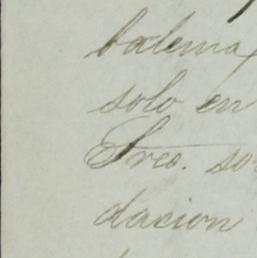 balema
solo en
Sres. so
dacion